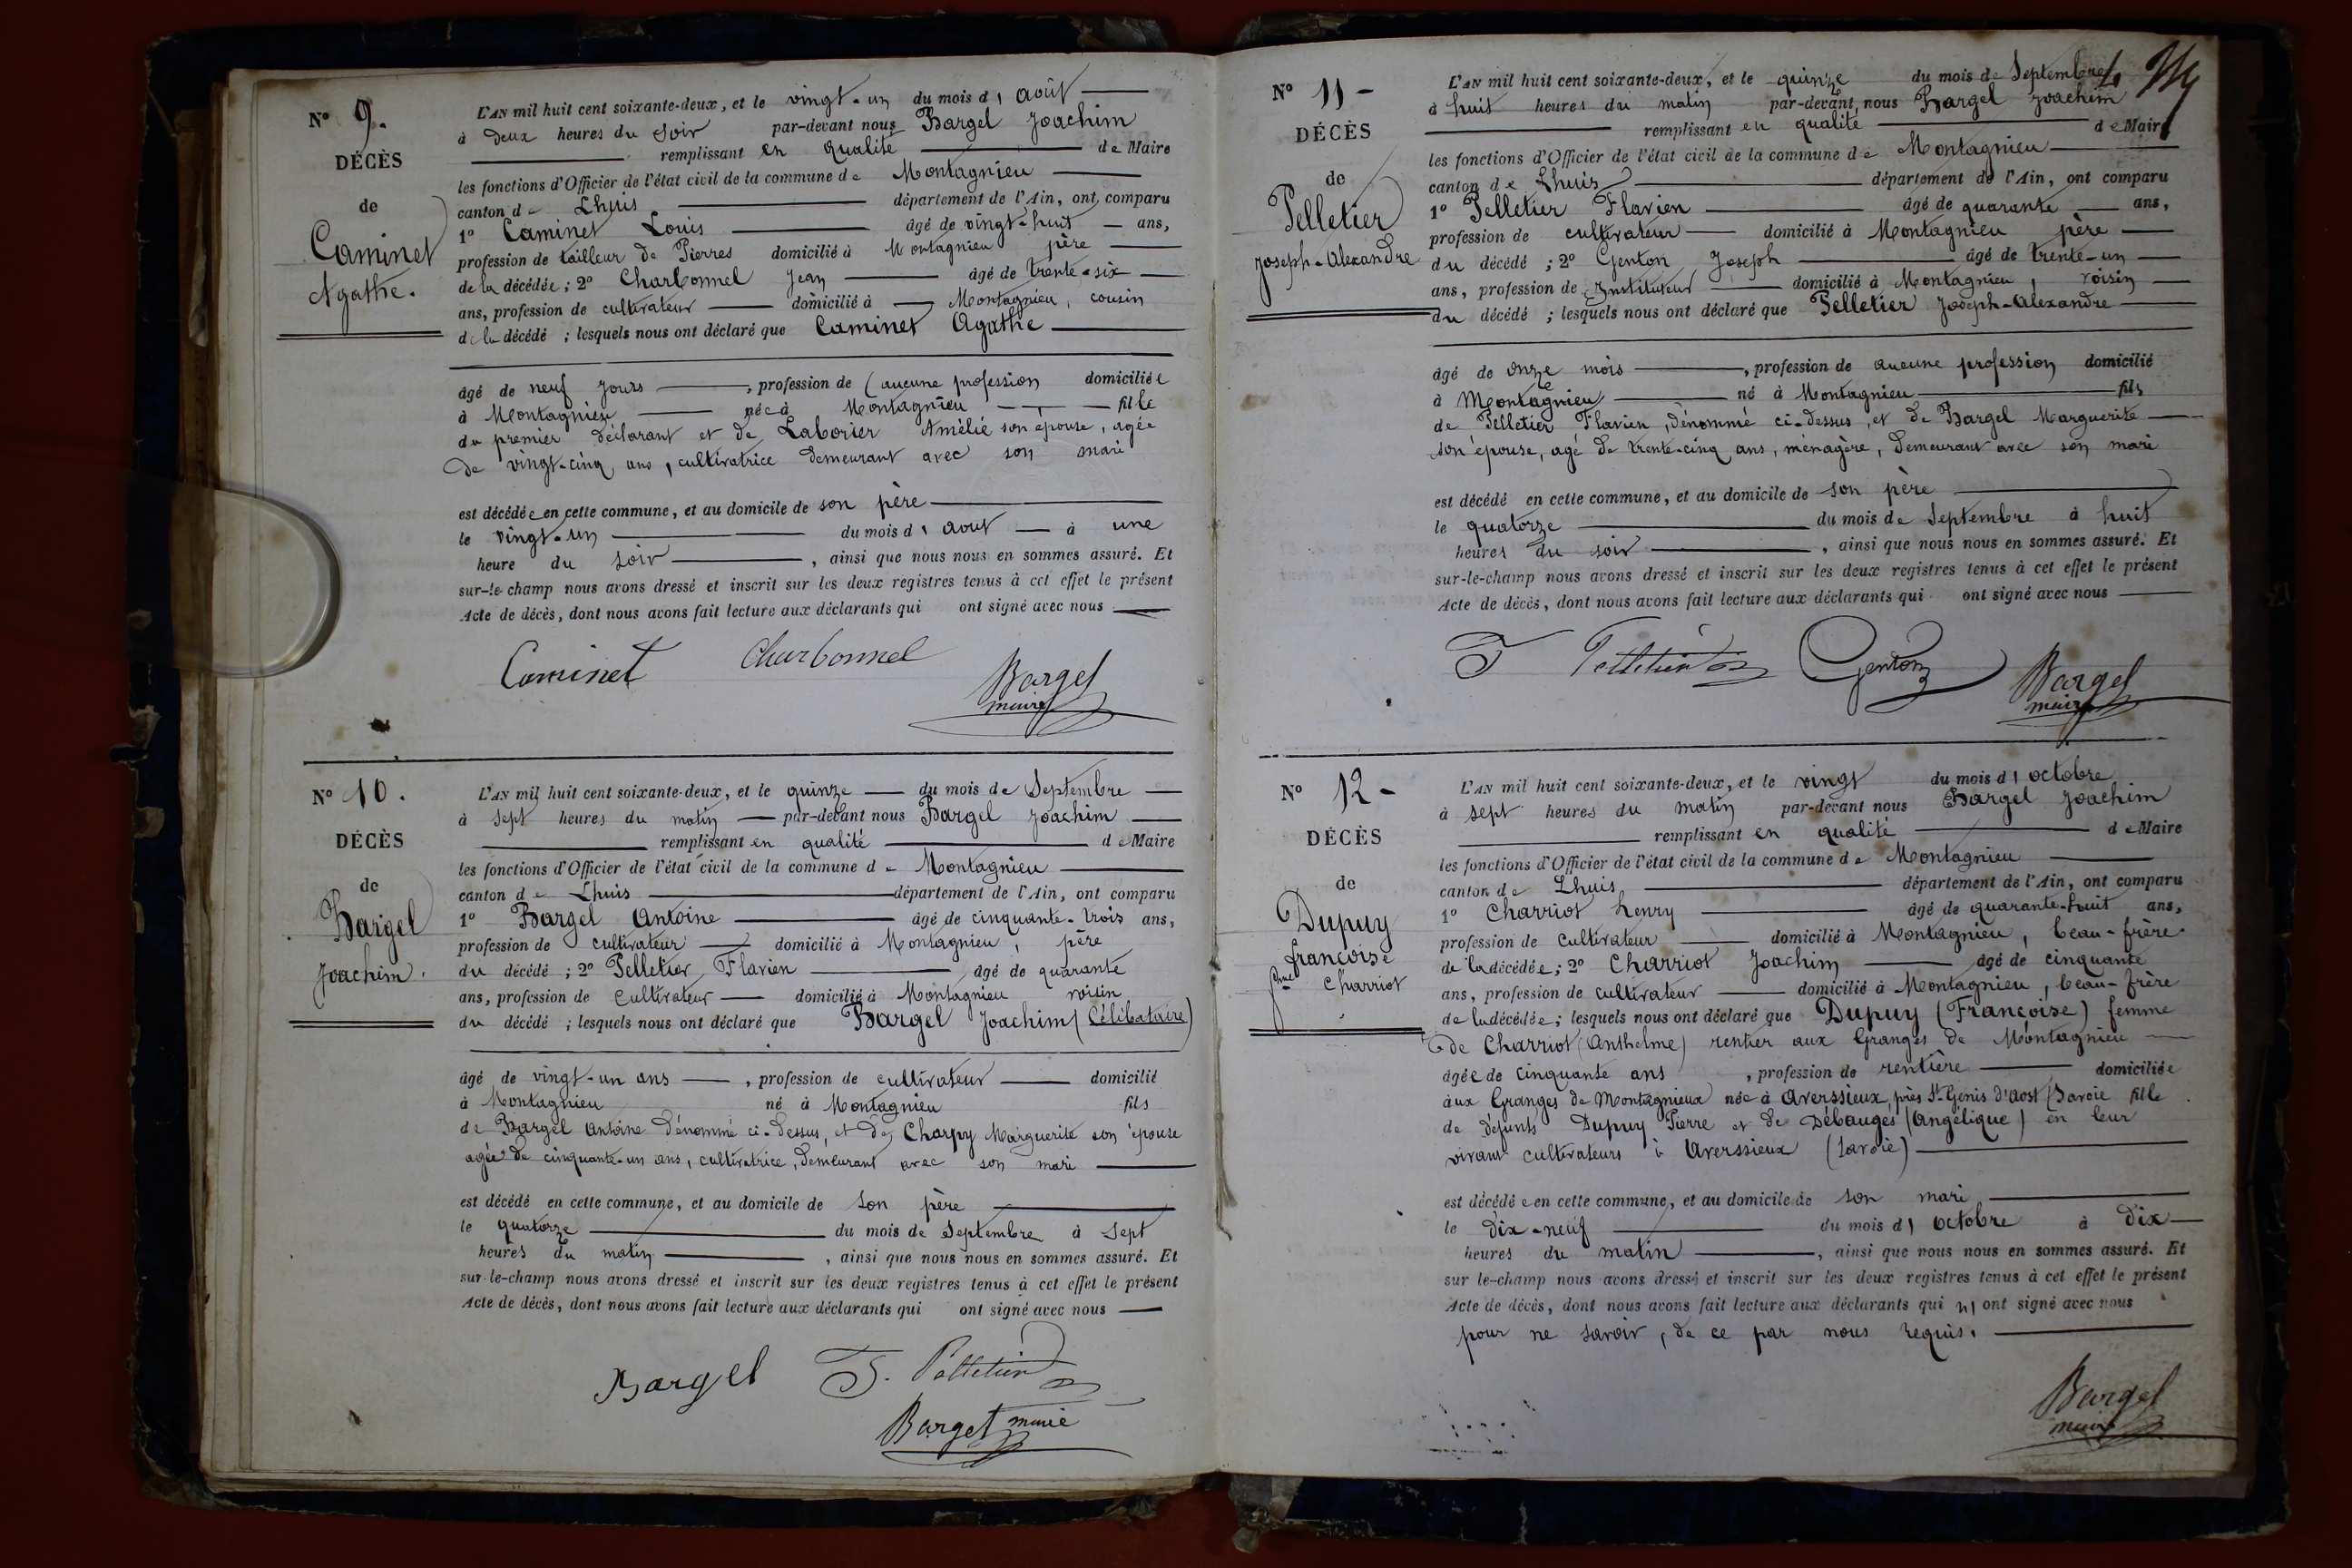 N° 9.
DÉCÈS
de
Caminet
Agathe.
L'AN mil huit cent soixante-deux, et le vingt-un du mois d' août
à deux heures du soir par-devant nous Bargel Joachim
remplissant en qualité de Maire
les fonctions d'Officier de l'état civil de la commune de Montagnieu
canton de Lhuis département de l'Ain, ont comparu
1° Caminet Louis âgé de vingt-huit ans,
profession de tailleur de Pierres domicilié à Montagnieu père
de la décédée ; 2° Charbonnel Jean âgé de trente-six
ans, profession de cultivateur domicilié à Montagnieu, cousin
de la décédé ; lesquels nous ont déclaré que Caminet Agathe
âgé de neuf jours , profession de (aucune profession domiciliée
à Montagnieu née à Montagnieu fille
du premier déclarant et de Laborier Amélie son épouse, agée
de vingt-cinq ans, cultivatrice demeurant avec son mari
est décédée en cette commune, et au domicile de son père
le vingt-un du mois d' aout à une
heure du soir , ainsi que nous nous en sommes assuré. Et
sur-le-champ nous avons dressé et inscrit sur les deux registres tenus à cet effet le présent
Acte de décès, dont nous avons fait lecture aux déclarants qui ont signé avec nous
Caminet Charbonnel Bargel
maire
N° 10.
DÉCÈS
de
Bargel
Joachim.
L'AN mil huit cent soixante-deux, et le quinze du mois de Septembre
à sept heures du matin par-devant nous Bargel Joachim
remplissant en qualité de Maire
les fonctions d'Officier de l'état civil de la commune de Montagnieu
canton de Lhuis département de l'Ain, ont comparu
1° Bargel Antoine âgé de cinquante-trois ans,
profession de cultivateur domicilié à Montagnieu, père
du décédé ; 2° Pelletier Flavien âgé de quarante
ans, profession de cultivateur domicilié à Montagnieu voisin
du décédé ; lesquels nous ont déclaré que Bargel Joachim (Célibataire)
âgé de vingt-un ans , profession de cultivateur domicilié
à Montagnieu né à Montagnieu fils
de Bargel Antoine dénommé ci-dessus, et de Charpy Marguerite son épouse
agée de cinquante-un ans, cultivatrice, demeurant avec son mari
est décédé en cette commune, et au domicile de son père
le quatorze du mois de Septembre à sept
heures du matin , ainsi que nous nous en sommes assuré. Et
sur-le-champ nous avons dressé et inscrit sur les deux registres tenus à cet effet le présent
Acte de décès, dont nous avons fait lecture aux déclarants qui ont signé avec nous
Bargel F. Pelletier
Bargel maire
N° 11-
DÉCÈS
de
Pelletier
Joseph-Alexandre
L'AN mil huit cent soixante-deux, et le quinze du mois de Septembre
à huit heures du matin par-devant nous Bargel Joachim
remplissant en qualité de Maire
les fonctions d'Officier de l'état civil de la commune de Montagnieu
canton de Lhuis département de l'Ain, ont comparu
1° Pelletier Flavien âgé de quarante ans,
profession de cultivateur domicilié à Montagnieu père
du décédé ; 2° Genton Joseph âgé de trente-un
ans, profession de Instituteur domicilié à Montagnieu, voisin
du décédé ; lesquels nous ont déclaré que Pelletier Joseph-Alexandre
âgé de onze mois , profession de aucune profession domicilié
à Montagnieu né à Montagnieu fils
de Pelletier Flavien, dénommé ci-dessus, et de Bargel Marguerite
son épouse, agé de trente-cinq ans, ménagère, demeurant avec son mari
est décédé en cette commune, et au domicile de son père
le quatorze du mois de Septembre à huit
heures du soir , ainsi que nous nous en sommes assuré. Et
sur-le-champ nous avons dressé et inscrit sur les deux registres tenus à cet effet le présent
Acte de décès, dont nous avons fait lecture aux déclarants qui ont signé avec nous
F Pelletier Genton Bargel
maire
N° 12-
DÉCÈS
de
Dupuy
françoise
fme Charriot
L'AN mil huit cent soixante-deux, et le vingt du mois d' octobre
à sept heures du matin par-devant nous Bargel Joachim
remplissant en qualité de Maire
les fonctions d'Officier de l'état civil de la commune de Montagnieu
canton de Lhuis département de l'Ain, ont comparu
1° Charriot henry âgé de quarante-huit ans,
profession de cultivateur domicilié à Montagnieu, beau-frère
de la décédée ; 2° Charriot Joachim âgé de cinquante
ans, profession de cultivateur domicilié à Montagnieu, beau-frère
de la décédée ; lesquels nous ont déclaré que Dupuy (Françoise) femme
de Charriot (Anthelme) rentier aux Granges de Montagnieu
âgée de cinquante ans , profession de rentière domiciliée
aux Granges de Montagnieux née à Averssieux, près St Genis d'aost (Savoie fille
de défunts Dupuy Pierre et de Débauges (Angélique) en leur
vivant cultivateurs à Averssieux (Savoie)
est décédée en cette commune, et au domicile de son mari
le dix-neuf du mois d' octobre à dix
heures du matin , ainsi que nous nous en sommes assuré. Et
sur-le-champ nous avons dressé et inscrit sur les deux registres tenus à cet effet le présent
Acte de décès, dont nous avons fait lecture aux déclarants qui n' ont signé avec nous
pour ne savoir, de ce par nous requis.
Bargel
maire